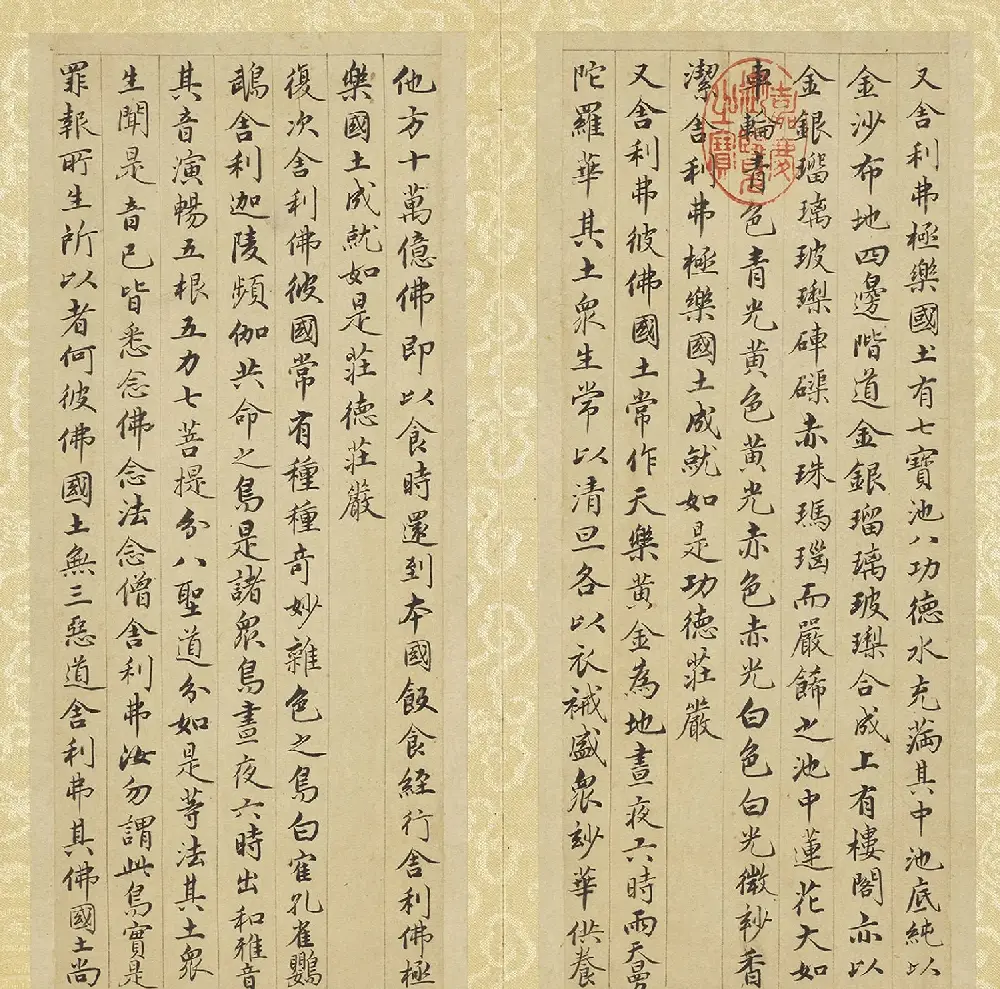 又舍利弗極樂國土有七寶池八功德水充滿其中池底純以
金沙布地四邊階道金銀瑠璃玻瓈合成上有樓閣亦以
金銀瑠璃玻瓈硨磲赤珠瑪瑙而嚴飾之池中蓮花大如
車輪青色青光黃色黃光赤色赤光白色白光微玅香
潔舍利弗極樂國土成就如是功德莊嚴
又舍利弗彼佛國土常作天樂黃金為地晝夜六時雨天曼
陀羅華其土眾生常以清旦各以衣祴盛眾玅華供養
他方十萬億佛即以食時還到本國飯食經行舍利佛極
樂國土成就如是莊德莊嚴
復次舍利佛彼國常有種種奇妙雜色之鳥白隺孔雀鸚
鵡舍利迦陵頻伽共命之鳥是諸眾鳥晝夜六時出和雅音
其音演暢五根五力七菩提分八聖道分如是等法其土眾
生聞是音已皆悉念佛念法念僧舍利弗汝勿謂此鳥實是
罪報所生所以者何彼佛國土無三惡道舍利弗其佛國土尚
嘉慶御覽之寶